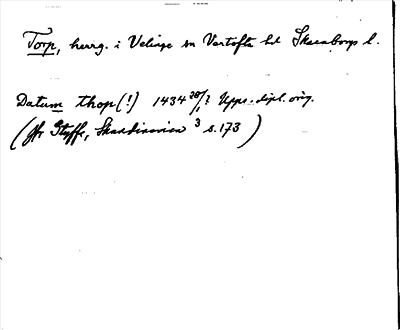 Torp, herrg. i Velinge sn Vartofta hd Skaraborgs l.
Datum thop (!) 1434 28/1? Upps. dipl. orig.
(jfr Styffe, Skandinavien 3 s. 173)